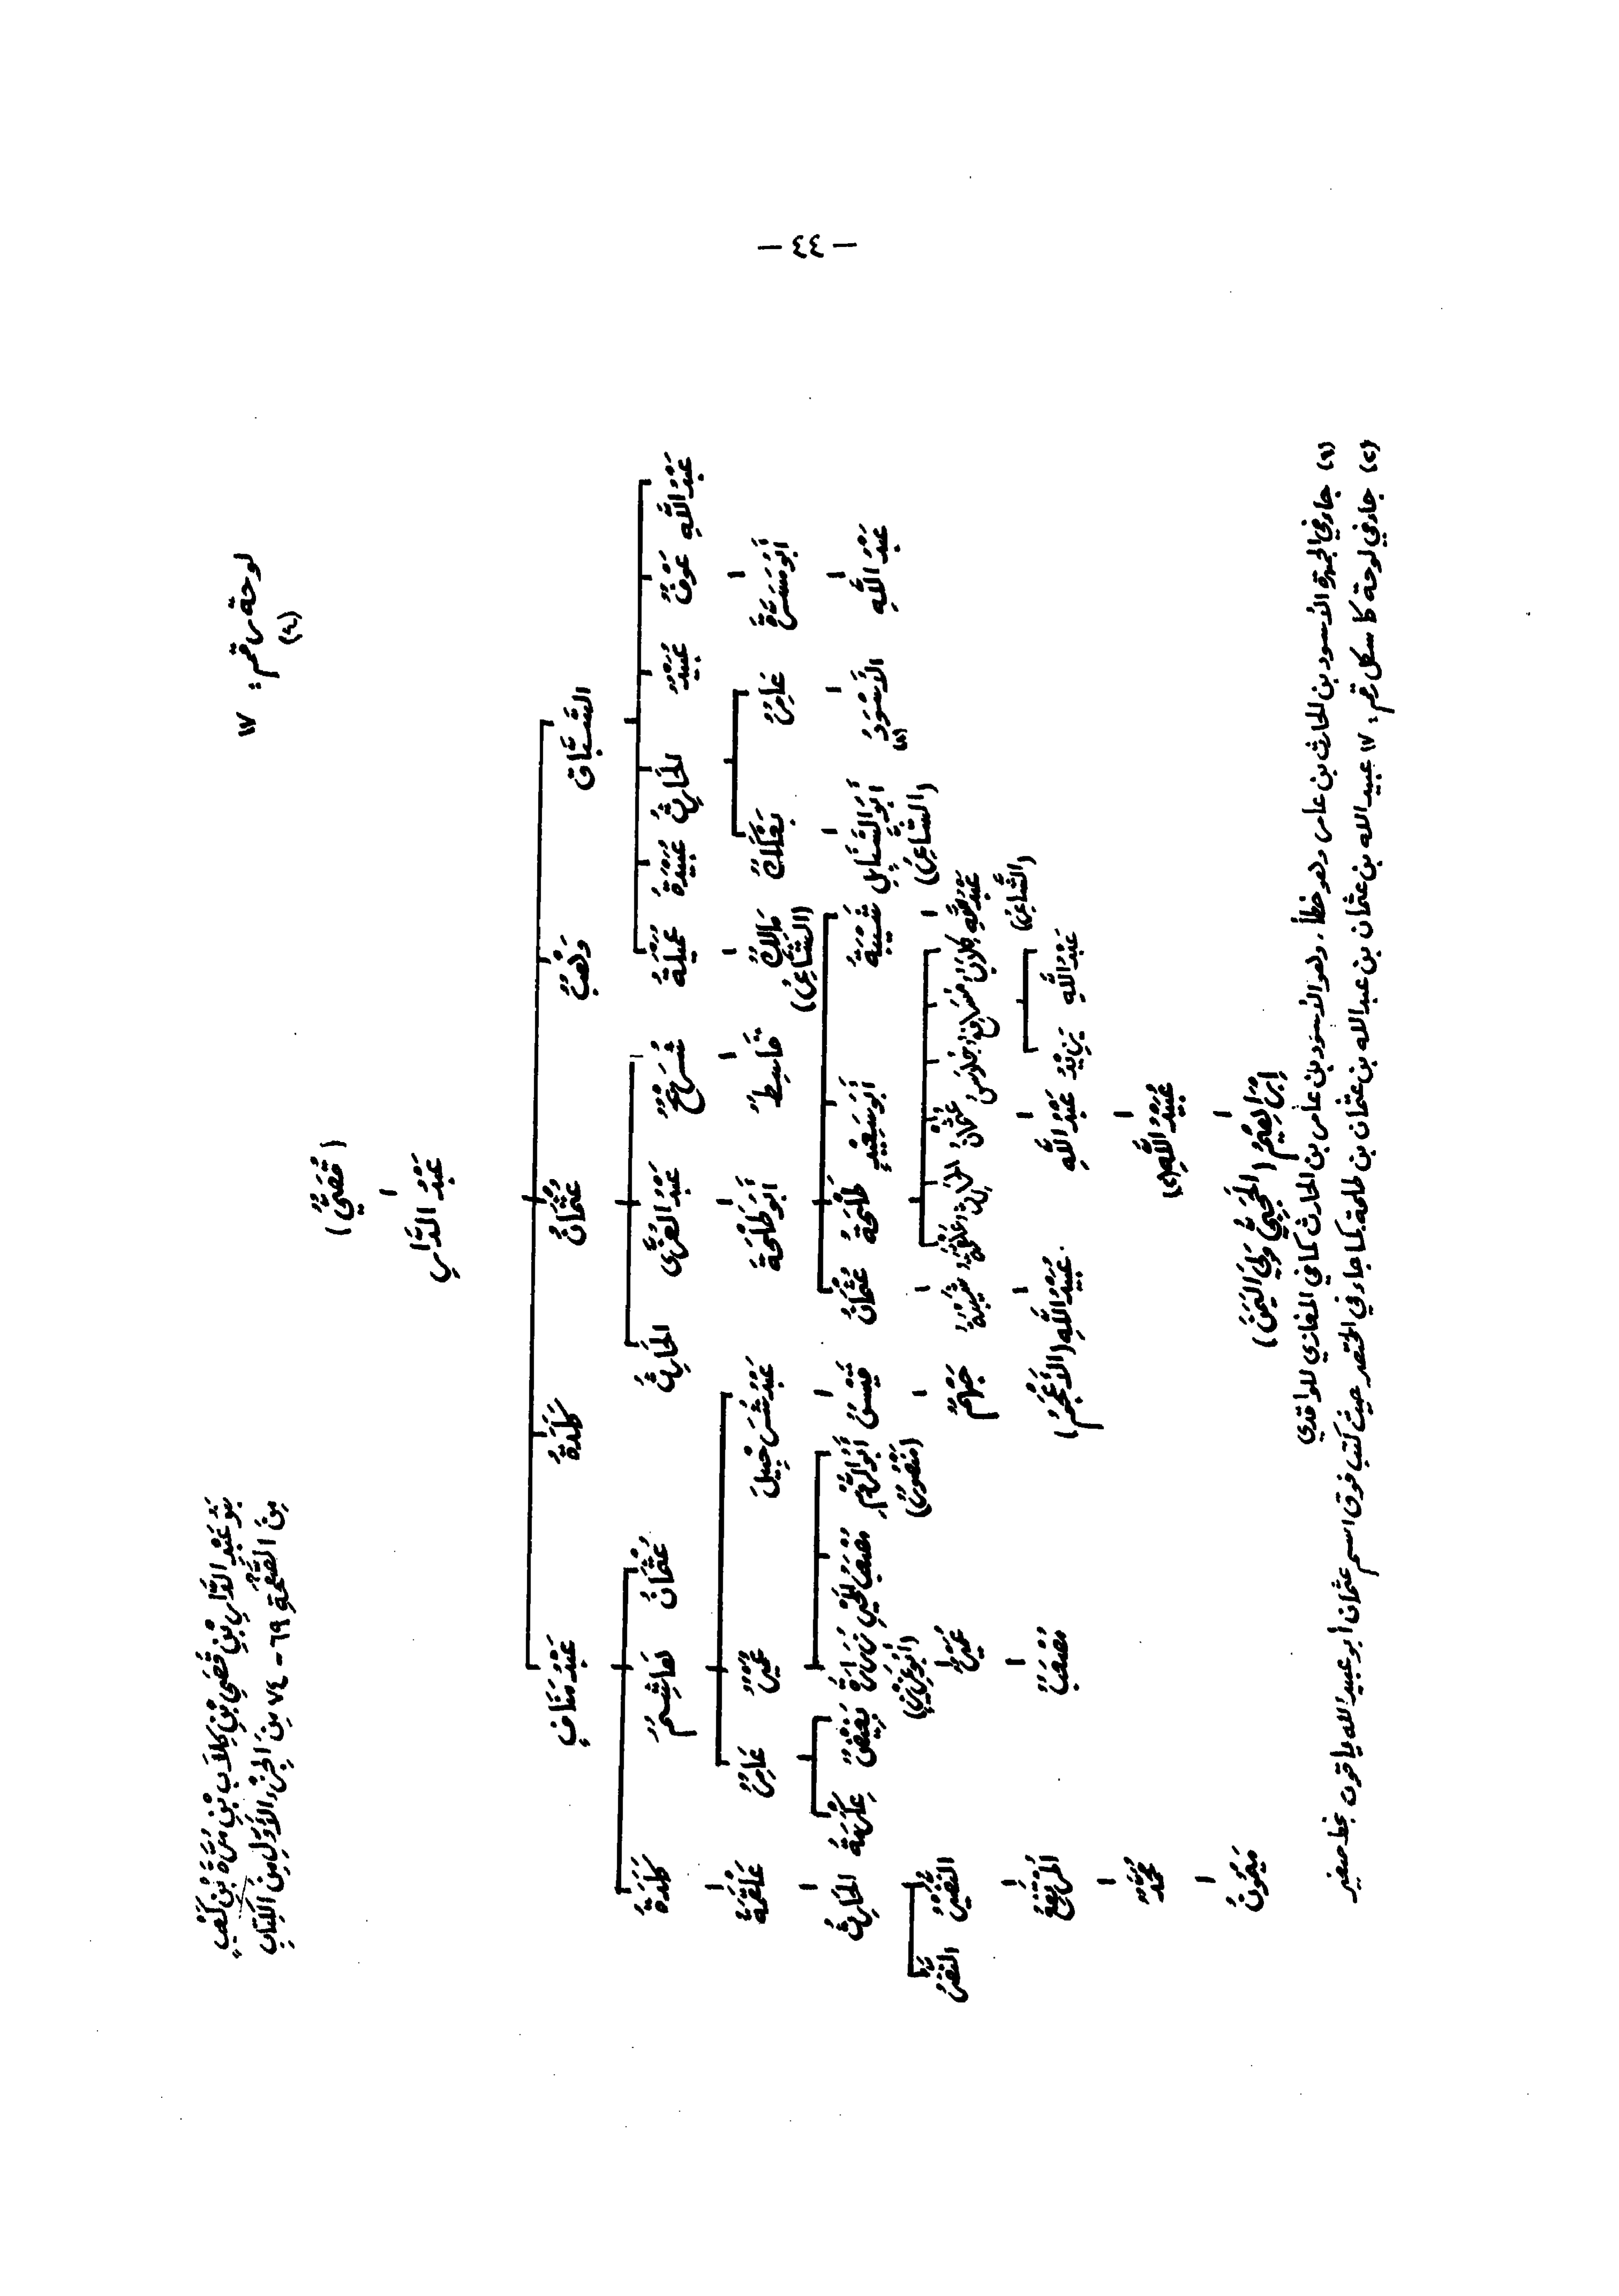 — ٤٤ —
لوحة رقم: ١٧
(٤)
بَنُو عَبْدِ الدَّارِ بْنِ قُصَيِّ بْنِ كِلَابِ بْنِ مُرَّةَ بْنِ كَعْبٍ
مِنَ الصَّفْحَةِ ٦٩ - ٧٤ مِنَ الْجُزْءِ الأَوَّلِ مِنَ الْكِتَابِ
(قُصَيٌّ)
عَبْدُ الدَّارِ
السَّبَّاقُ وَهْبٌ عُثْمَانُ كَلَدَةُ عَبْدُ مَنَافٍ
عَبْدُ اللَّهِ عَوْفٌ عُبَيْدٌ الحَارِثُ عُبَيْدَةُ عُمَيْلَةُ شُرَيْحٌ عَبْدُ العُزَّى الحَارِثُ عُثْمَانُ هَاشِمٌ كَلَدَةُ
أَبُو مَسَرَّةَ عَامِرٌ بَعْكَكٌ مَالِكٌ (الشَّاعِرُ) قَاسِطٌ أَبُو طَلْحَةَ عَبْدُ شُرَحْبِيلَ عُمَيْرٌ عَامِرٌ عَلْقَمَةُ
عَبْدُ اللَّهِ الأَسْوَدُ (١) أَبُو السَّنَابِلِ (الشَّاعِرُ) شَيْبَةُ أَبُو سَعِيْدٍ طَلْحَةُ عُثْمَانُ قَيْسٌ أَبُو الرُّومِ (مَنْصُورٌ) مُصْعَبُ الخَيْرِ زُرَارَةُ (أَبُو عَزِيزٍ) بَغِيْضٌ عِكْرِمَةُ الحَارِثُ
عَبْدُ اللَّهِ (الشَّاعِرُ) كِلَابٌ مُسَافِعٌ جُلَاسٌ عُثْمَانُ الحَارِثُ شَيْبَةُ جَهْمٌ عُمَيْرٌ النُّضَيْرُ النَّضْرُ
عَبْدُ اللَّهِ يَزِيْدُ عَبْدُ اللَّهِ عُبَيْدُ اللَّهِ (الأَعْجَمُ) مُصْعَبٌ المُرْتَفِعُ
عُبَيْدُ اللَّهِ (٢) مُحَمَّدٌ
إِبْرَاهِيْمُ (الحَجَبِيُّ وَلِيَ اليَمَنَ) مَيْمُونٌ
(١) جاء في الجمهرة الأسود بن الحارث بن عامر وهو خطأ، وهو الأسود بن عامر بن الحارث كما في المغازي للواقدي
(٢) جاء في لوحة كاسكل رقم: ١٧ عبيد الله بن عثمان بن عبد الله بن عثمان بن طلحة كما جاء في المختصر حيث كتب فوق اسم عثمان أبو عبيد الله ياقوت بخط صغير